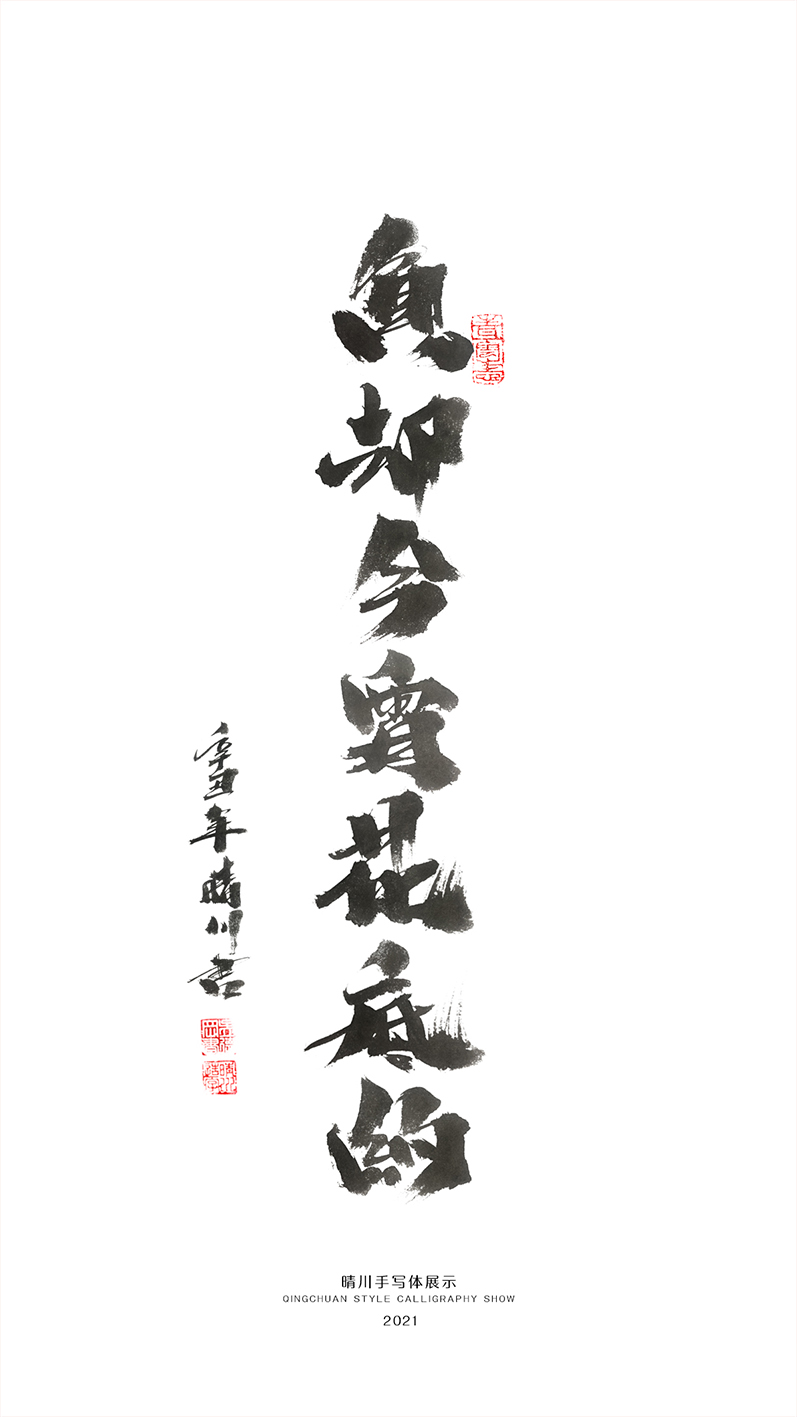 負却今宵花底約
辛丑年晴川书
晴川手写体展示
QINGCHUAN STYLE CALLIGRAPHY SHOW
2021